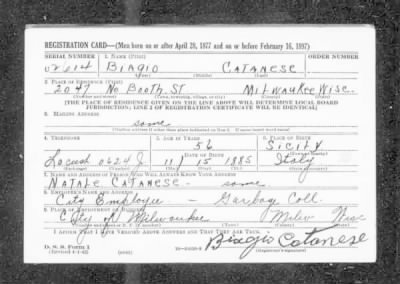 REGISTRATION CARD—(Men born on or after April 28, 1877 and on or before February 16, 1897)
SERIAL NUMBER 1. NAME (Print) ORDER NUMBER
U 2614 BIAGIO CATANESE
2. PLACE OF RESIDENCE (Print)
2047 No. BOOTH ST MILWAUKEE WISC.
[THE PLACE OF RESIDENCE GIVEN ON THE LINE ABOVE WILL DETERMINE LOCAL BOARD
JURISDICTION; LINE 2 OF REGISTRATION CERTIFICATE WILL BE IDENTICAL]
3. MAILING ADDRESS
same
4. TELEPHONE 5. AGE IN YEARS 6. PLACE OF BIRTH
56 SICILY
DATE OF BIRTH
Locust 0624 J 11 15 1885 Italy
7. NAME AND ADDRESS OF PERSON WHO WILL ALWAYS KNOW YOUR ADDRESS
NATALE CATANESE - same
8. EMPLOYER'S NAME AND ADDRESS
City Employee - Garbage Coll.
9. PLACE OF EMPLOYMENT OR BUSINESS
City of Milwaukee Milw Wisc
I AFFIRM THAT I HAVE VERIFIED ABOVE ANSWERS AND THAT THEY ARE TRUE.
Biagio Catanese
D. S. S. Form 1
(Revised 4-1-42) (over) (Registrant's signature)